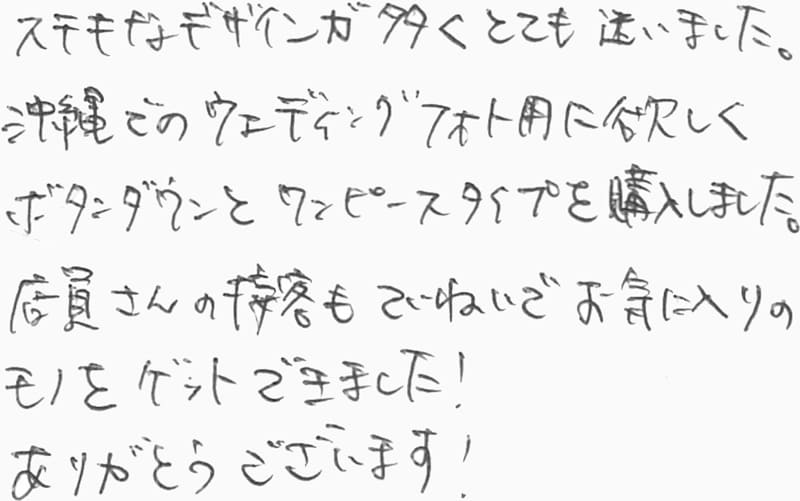 ステキなデザインが多くとても迷いました。
沖縄でのウェディングフォト用に欲しく
ボタンダウンとワンピースタイプを購入しました。
店員さんの接客もていねいでお気に入りの
モノをゲットできました!
ありがとうございます!